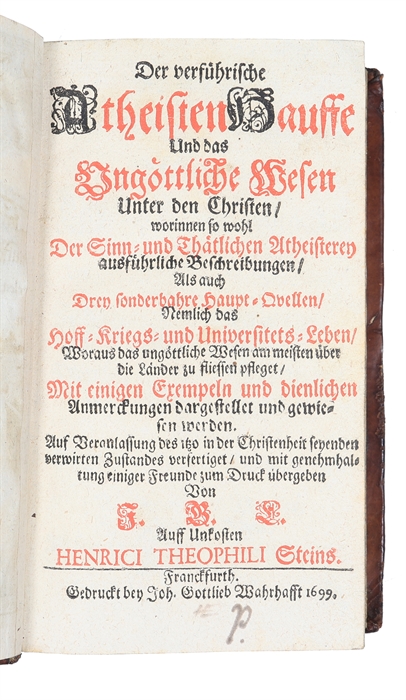 Der verführische
Atheisten Hauffe
Und das
Ungöttliche Wesen
Unter den Christen/
worinnen so wohl
Der Sinn- und Thätlichen Atheisterey
ausführliche Beschreibungen/
Als auch
Drey sonderbahre Haupt-Qvellen/
Nemlich das
Hoff-Kriegs- und Universitets-Leben/
Woraus das ungöttliche Wesen am meisten über
die Länder zu fliessen pfleget/
Mit einigen Exempeln und dienlichen
Anmerckungen dargestellet und gewie-
sen werden.
Auf Veranlassung des itzo in der Christenheit seyenden
verwirten Zustandes verfertiget/ und mit genehmhal-
tung einiger Freunde zum Druck übergeben
Von
J. B. L.
Auff Unkosten
HENRICI THEOPHILI Steins.
Franckfurth.
Gedruckt bey Joh. Gottlieb Wahrhafft 1699.
P.